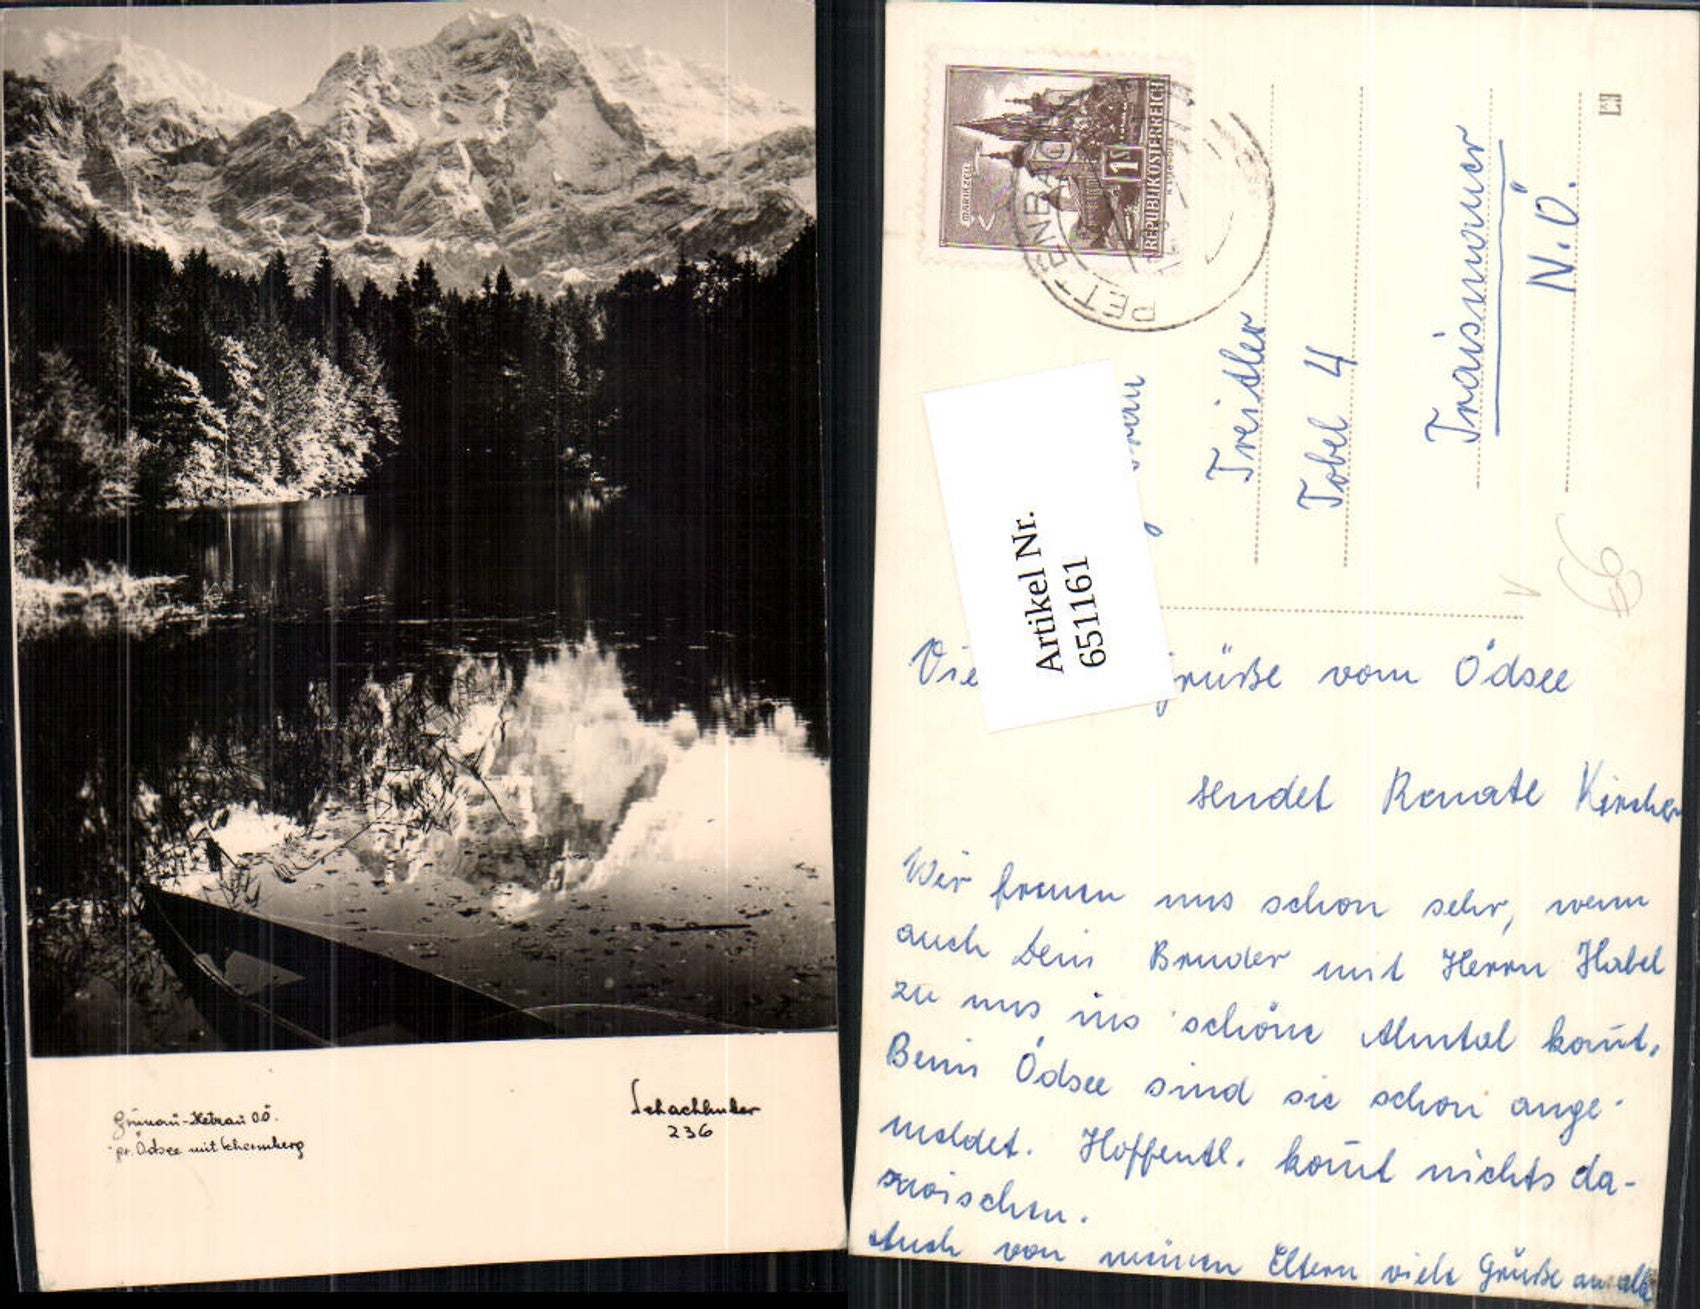 Grünau-Hetzau O.Ö.
gr. Ödsee mit Schermberg
Schachhuber
236
MARIAZELL
1S
REPUBLIK ÖSTERREICH
PETTENBACH
Treitler
Tobel 4
Traismauer
N.Ö.
66
Artikel Nr.
651161
Vie rüße vom Ödsee
sendet Renate Kircher
Wir freuen uns schon sehr, wenn
auch Dein Bruder mit Herrn Habel
zu uns ins schöne Almtal kom̅t.
Beim Ödsee sind sie schon ange-
meldet. Hoffentl. kom̅t nichts da-
zwischen.
Auch von meinen Eltern viele Grüße an alle